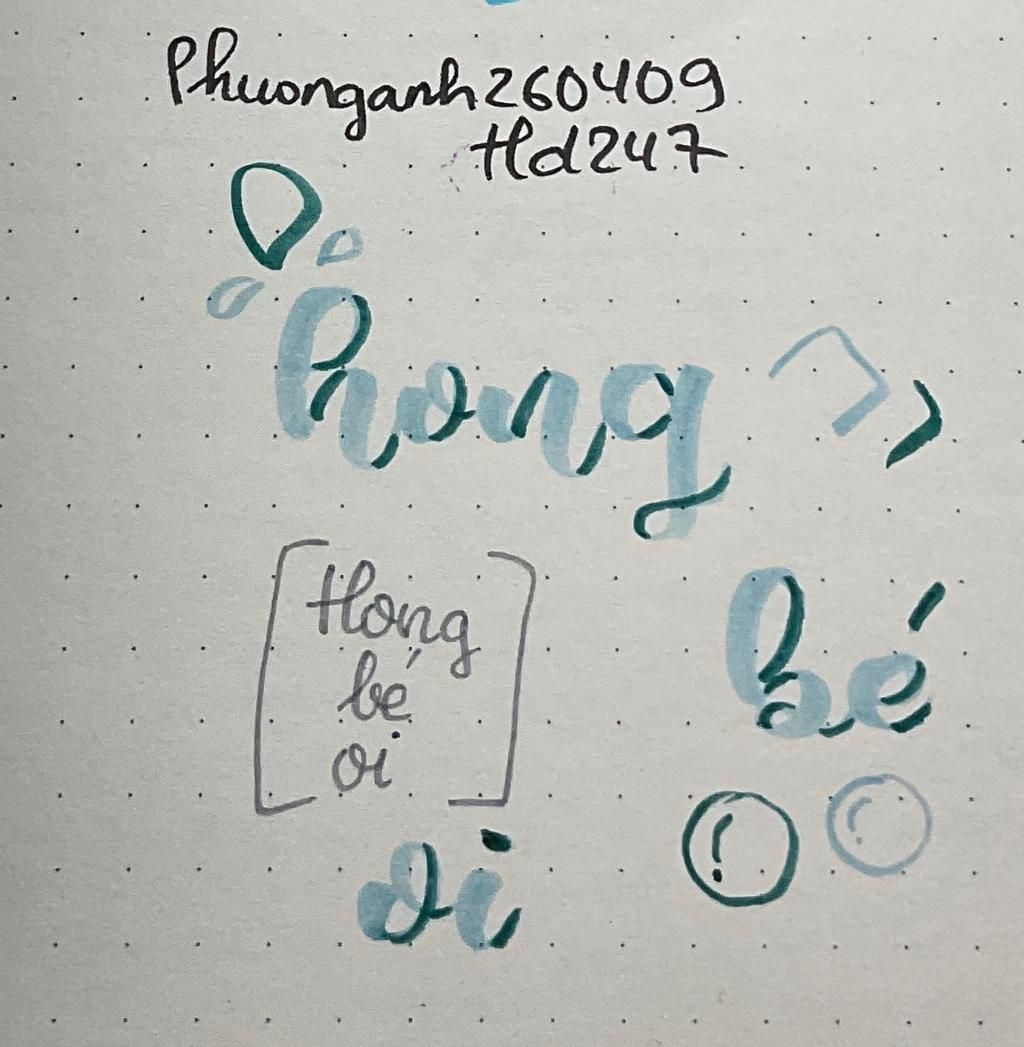 Phuonganh260409
Hd247
hong
Hong
bé
ơi
bé
ơi